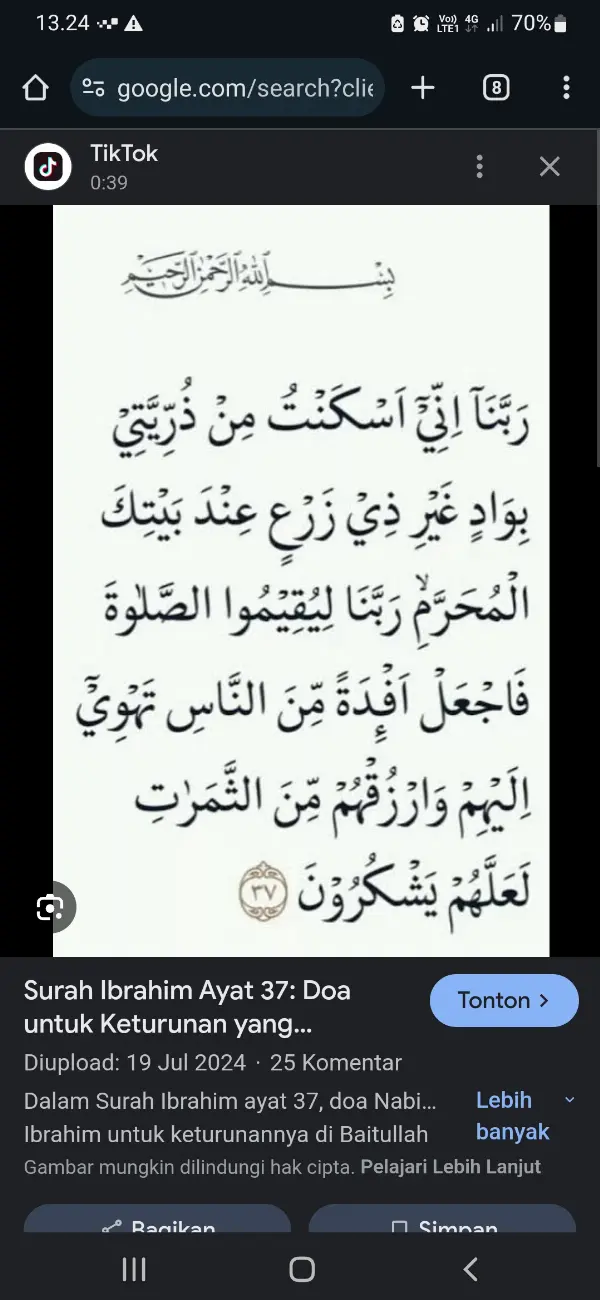 13.24
Vo)) LTE1 4G 70%
google.com/search?clie
8
TikTok
0:39
بِسْمِ اللهِ الرَّحْمٰنِ الرَّحِيْمِ
رَبَّنَآ اِنِّيْٓ اَسْكَنْتُ مِنْ ذُرِّيَّتِيْ
بِوَادٍ غَيْرِ ذِيْ زَرْعٍ عِنْدَ بَيْتِكَ
الْمُحَرَّمِۙ رَبَّنَا لِيُقِيْمُوا الصَّلٰوةَ
فَاجْعَلْ اَفْـِٕدَةً مِّنَ النَّاسِ تَهْوِيْٓ
اِلَيْهِمْ وَارْزُقْهُمْ مِّنَ الثَّمَرٰتِ
لَعَلَّهُمْ يَشْكُرُوْنَ ٣٧
Surah Ibrahim Ayat 37: Doa
untuk Keturunan yang...
Tonton
Diupload: 19 Jul 2024 · 25 Komentar
Dalam Surah Ibrahim ayat 37, doa Nabi...
Ibrahim untuk keturunannya di Baitullah
Lebih
banyak
Gambar mungkin dilindungi hak cipta. Pelajari Lebih Lanjut
Bagikan
Simpan